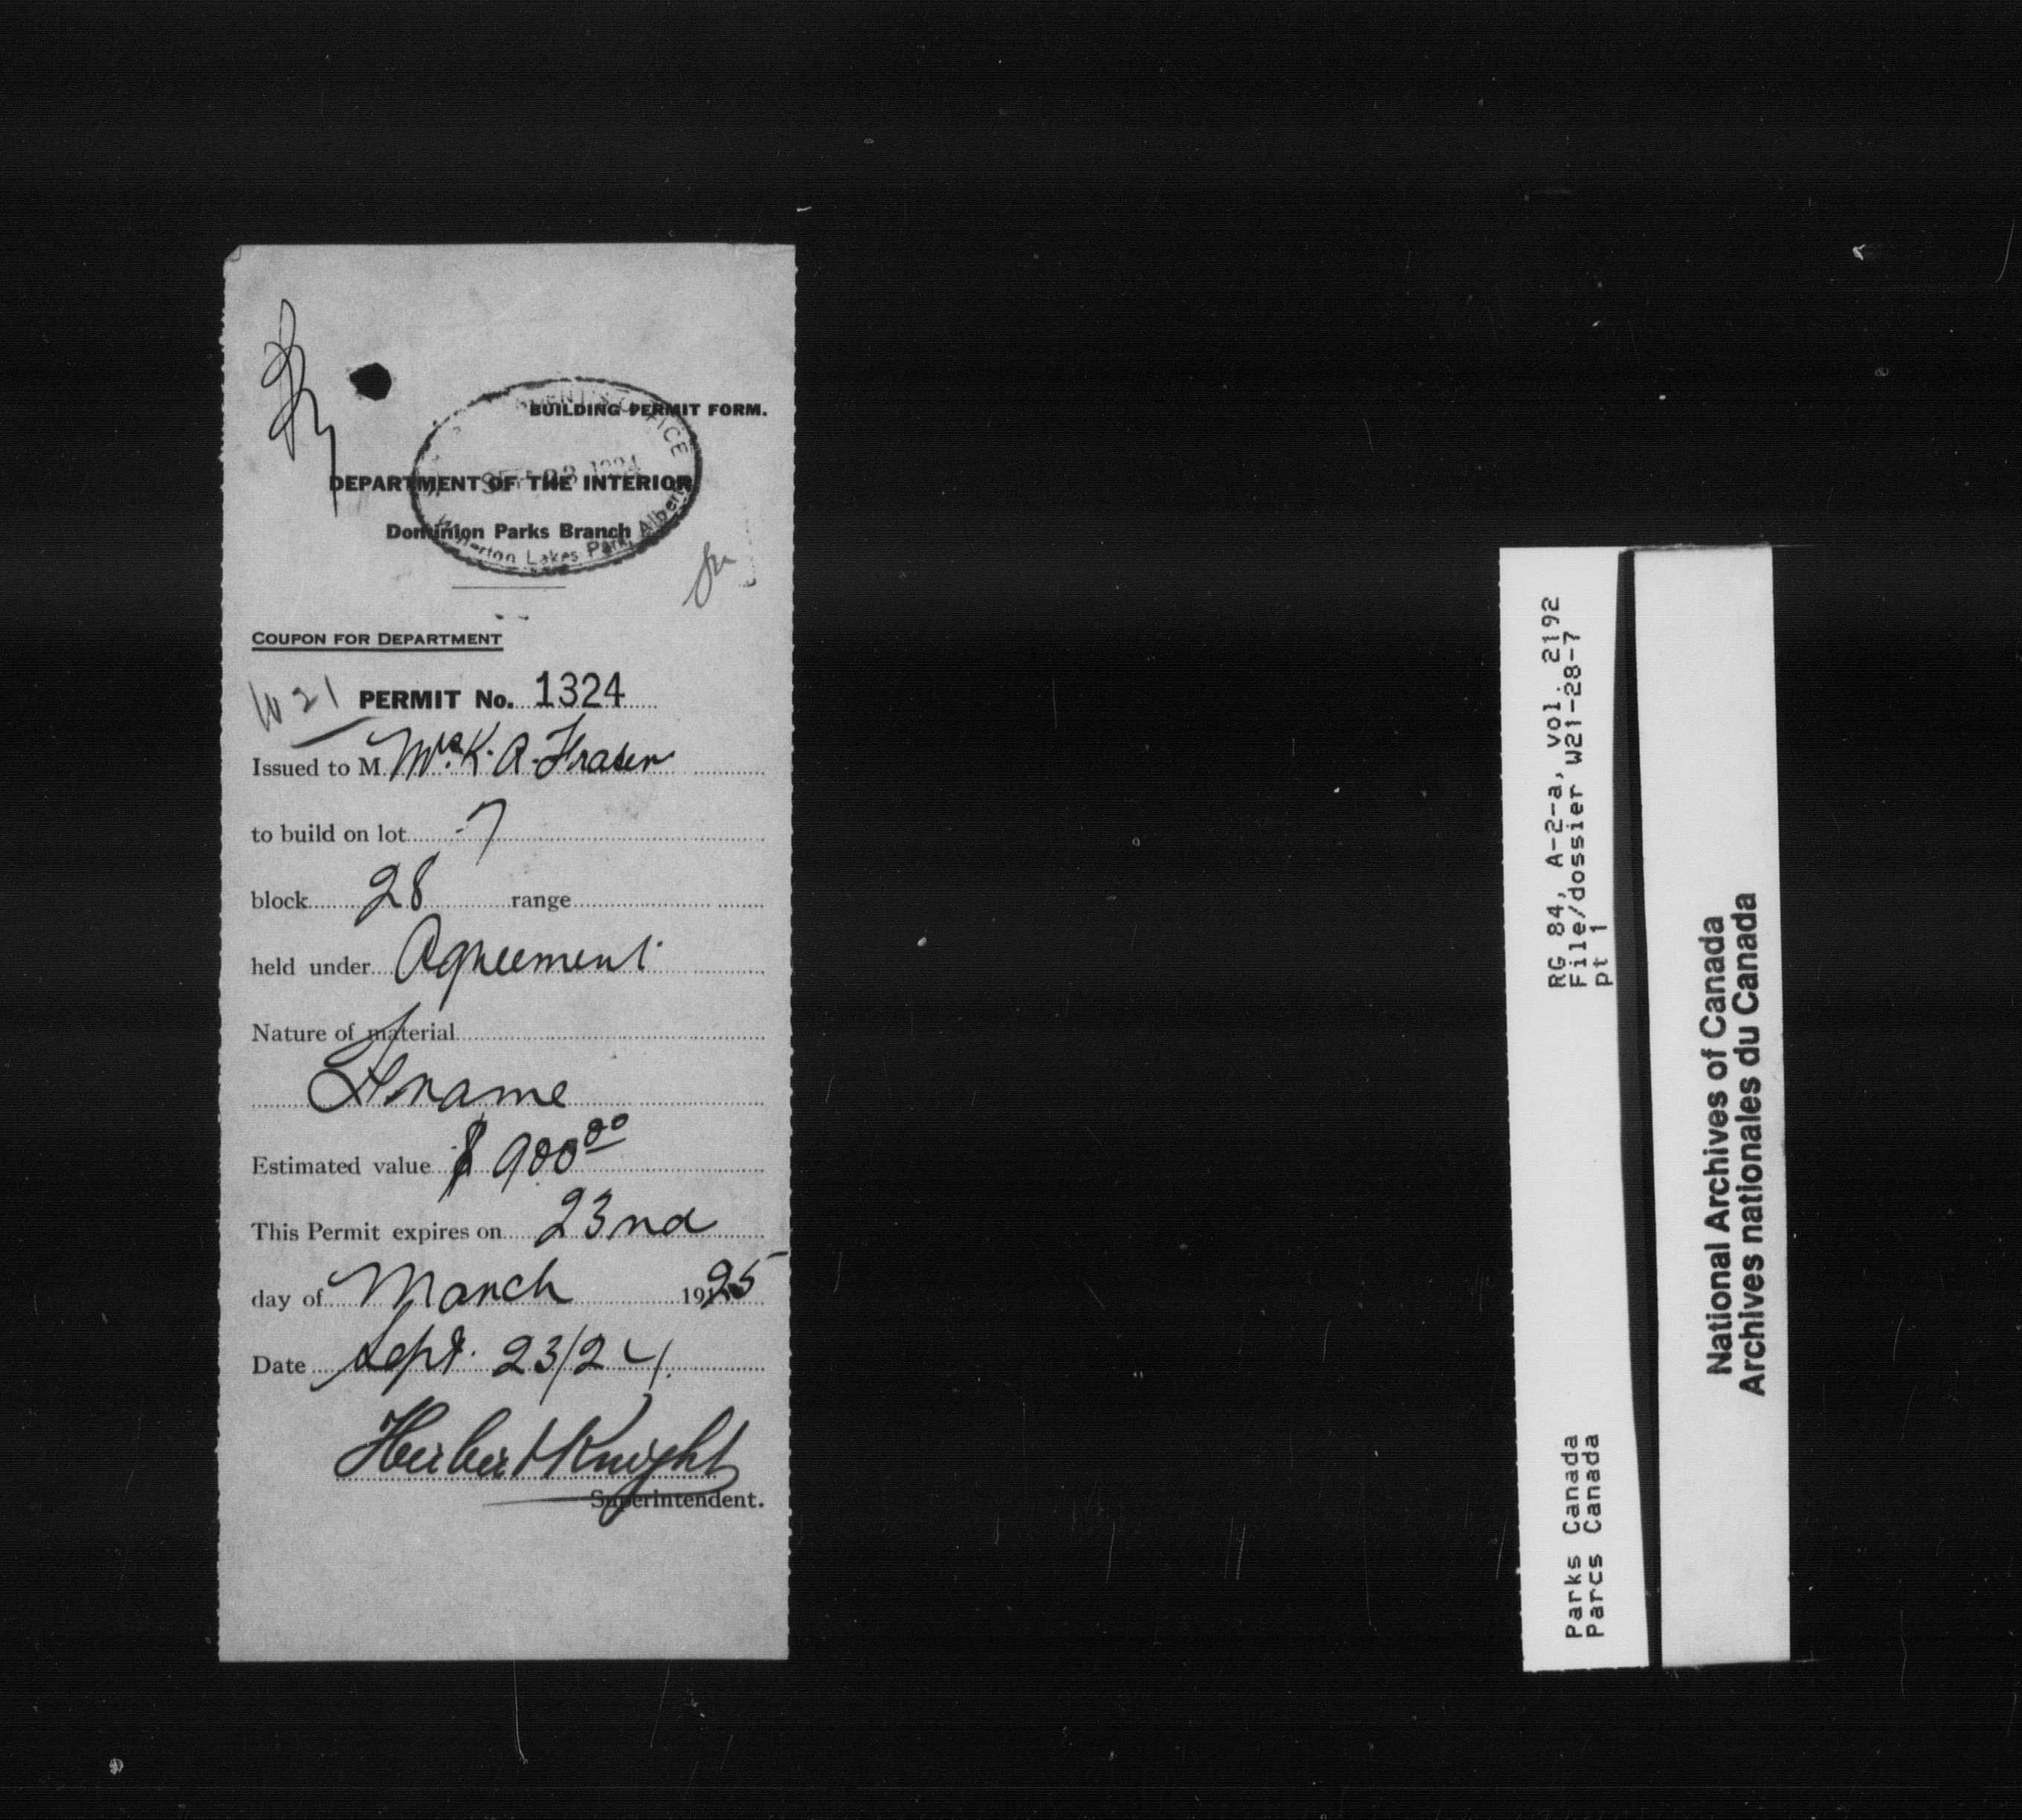 BUILDING PERMIT FORM.
SEP 23 1924
DEPARTMENT OF THE INTERIOR
Dominion Parks Branch
Waterton Lakes Park, Alberta
COUPON FOR DEPARTMENT
W 21 PERMIT No. 1324
Issued to M Mrs. K. A. Fraser
to build on lot 7
block 28 range
held under Agreement
Nature of material
Frame
Estimated value $ 900.00
This Permit expires on 23nd
day of March 1925
Date Sept. 23/24.
Herbert Knight
Superintendent.
RG 84, A-2-a, vol. 2192
File/dossier W21-28-7
pt 1
Parks Canada
Parcs Canada
National Archives of Canada
Archives nationales du Canada